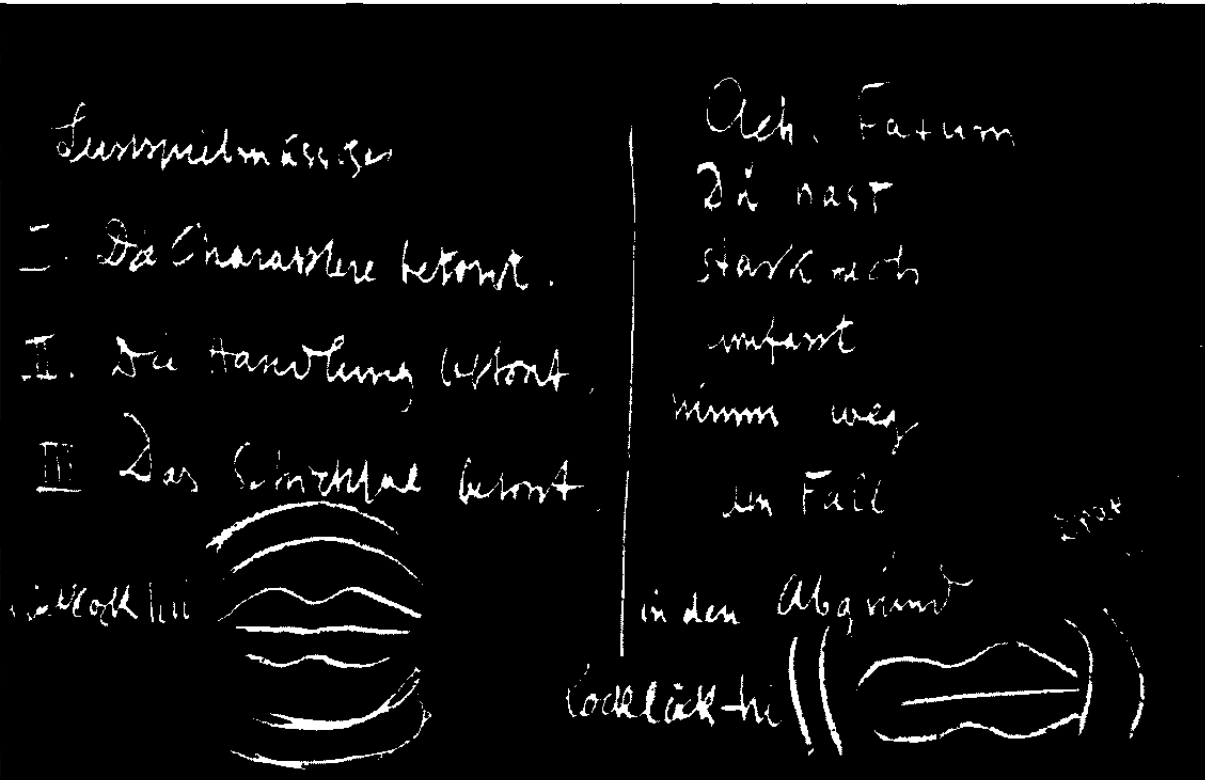 Lustspielmässiges
I. Die Charaktere betont.
II. Die Handlung betont.
III Das Schicksal betont
Ach, Fatum
Du hast
stark mich
umfasst
nimm weg
den Fall
in den Abgrund